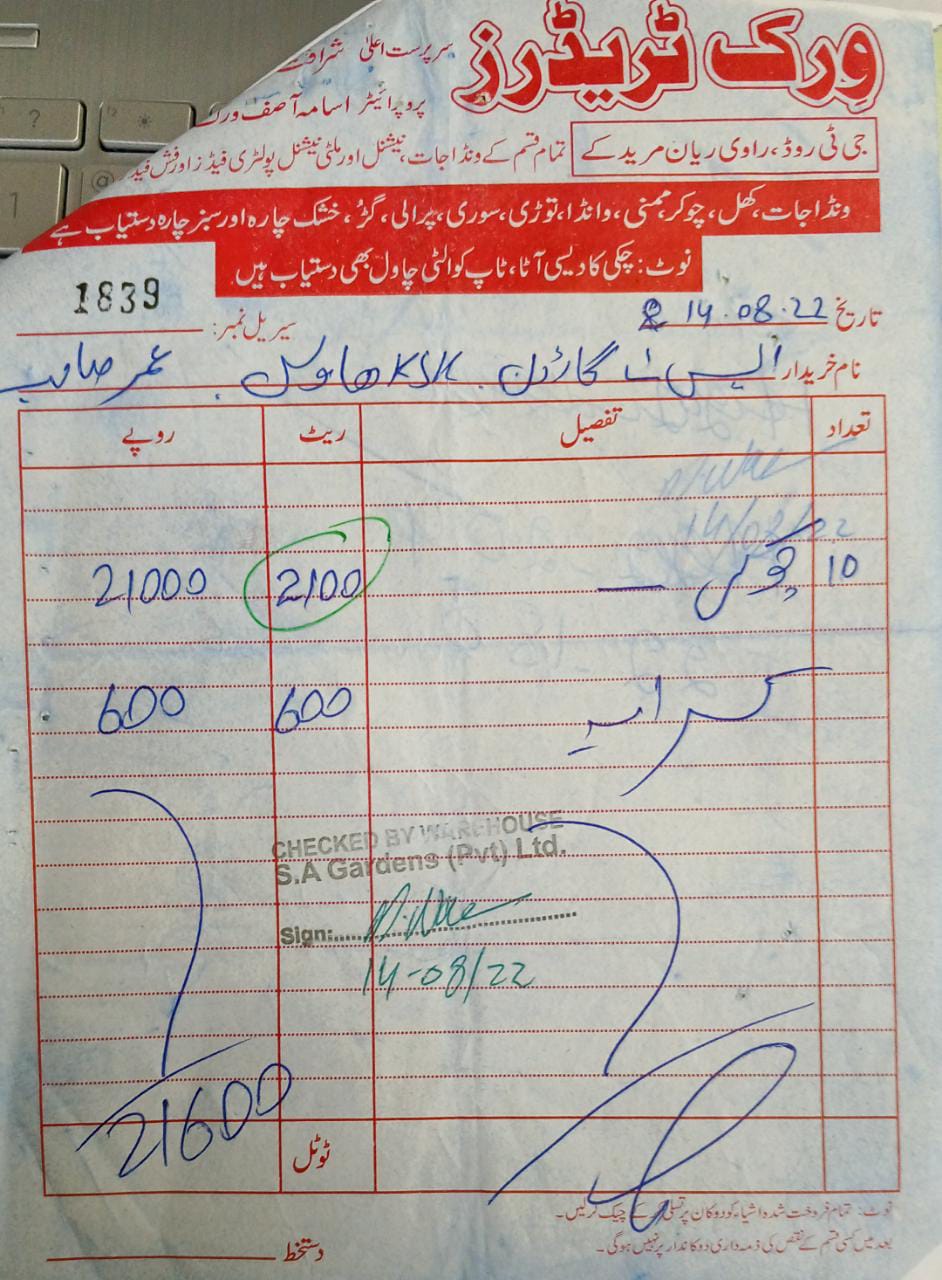 ورک ٹریڈرز
سرپرست اعلیٰ
پروپرائیٹر اسامہ آصف ورک
جی ٹی روڈ، راوی ریان مریدکے
تمام قسم کے ونڈا جات، نیشنل اور ملٹی نیشنل پولٹری فیڈز اور فش فیڈ
ونڈا جات، کھل، چوکر، ممنی، وانڈا، توڑی، سوری، پرالی، گڑ، خشک چارہ اور سبز چارہ دستیاب ہے
نوٹ: چکی کا دیسی آٹا، ٹاپ کوالٹی چاول بھی دستیاب ہیں
تاریخ 14.08.22
سیریل نمبر: 1839
نام خریدار ایس اے گارڈن KSK ھاوس عمر صاحب
تعداد تفصیل ریٹ روپے
14/08/22
10 2100 21000
کرایہ 600 600
CHECKED BY WAREHOUSE
S.A Gardens (Pvt) Ltd.
Sign:
14-08/22
ٹوٹل 21600
نوٹ: تمام فروخت شدہ اشیاء کو دوکان پر تسلی کر کے چیک کر لیں۔
بعد میں کسی قسم کے نقص کی ذمہ داری دوکاندار پر نہیں ہوگی۔
دستخط